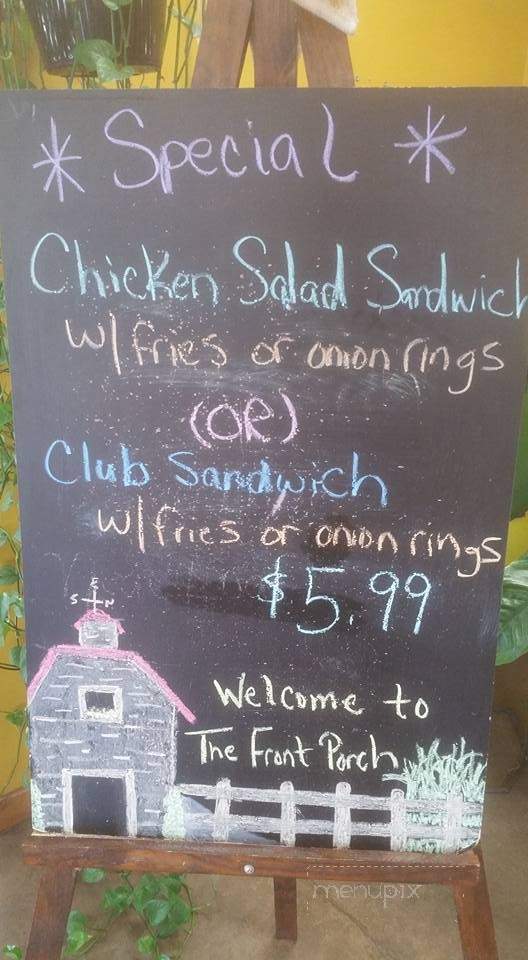 * Special *
Chicken Salad Sandwich
w/ fries or onion rings
(OR)
Club Sandwich
w/ fries or onion rings
$5.99
E
S N
Welcome to
The Front Porch
menupix